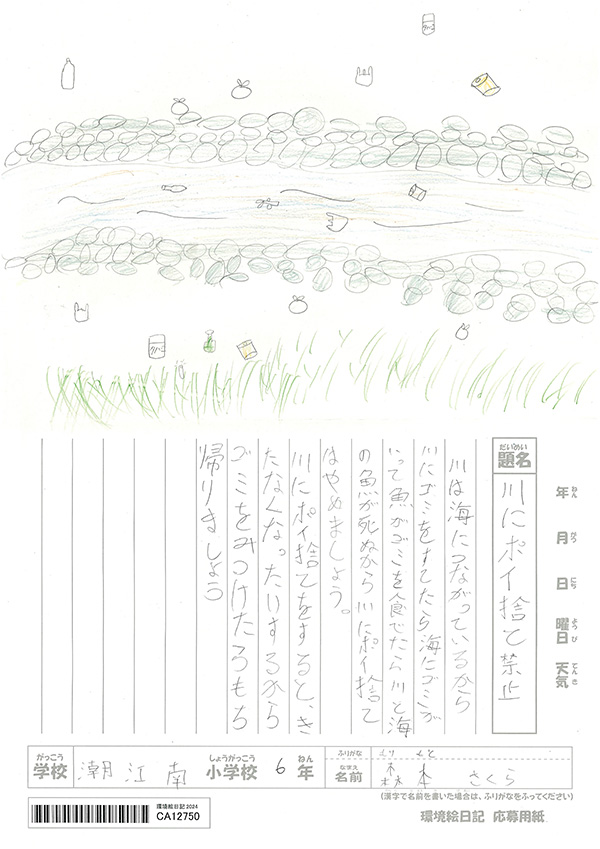 だいめい
題名
川にポイ捨て禁止
年 ねん
月 がつ
日 にち
曜日 ようび
天気 てんき
川は海につながっているから
川にゴミをすてたら海にゴミが
いって魚がゴミを食べてたら川と海
の魚が死ぬから川にポイ捨て
はやめましょう。
川にポイ捨てをすると、き
たなくなったりするから
ゴミをみつけたらもち
帰りましょう
がっこう
学校
潮江南
しょうがっこう
小学校
6
ねん
年
ふりがな
もり もと
なまえ
名前
森本 さくら
(漢字で名前を書いた場合は、ふりがなをふってください)
環境絵日記2024
CA12750
環境絵日記 応募用紙